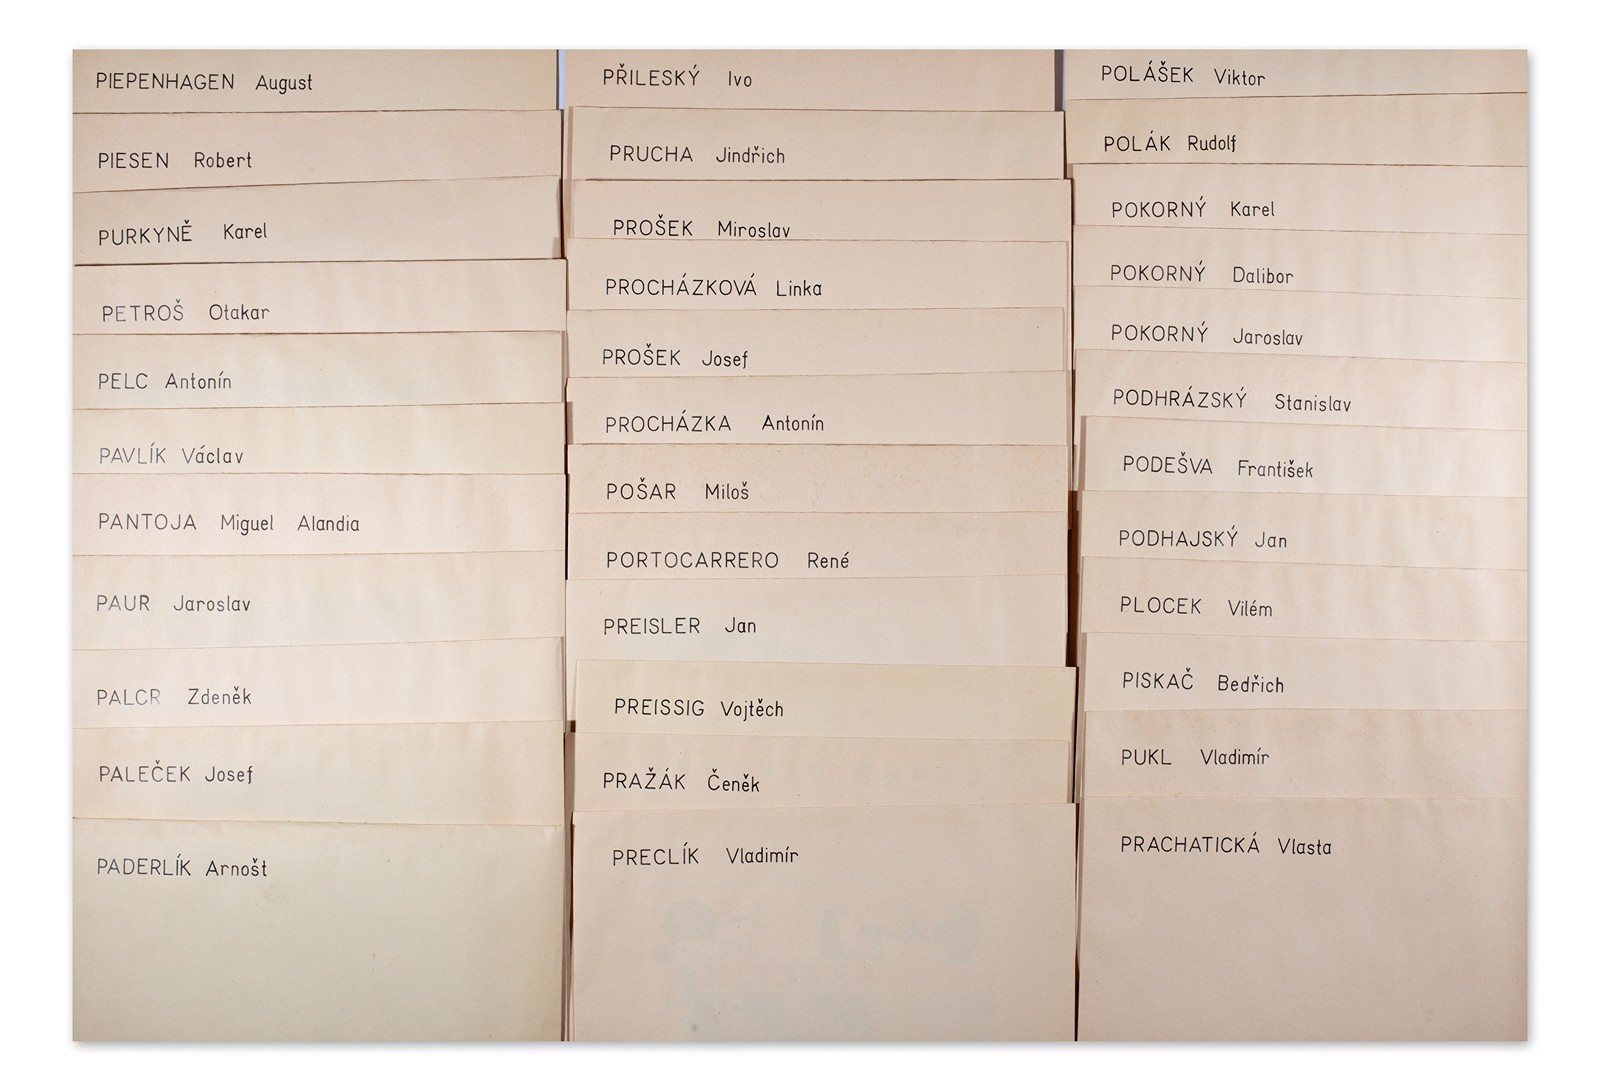 PIEPENHAGEN August
PIESEN Robert
PURKYNĚ Karel
PETROŠ Otakar
PELC Antonín
PAVLÍK Václav
PANTOJA Miguel Alandia
PAUR Jaroslav
PALCR Zdeněk
PALEČEK Josef
PADERLÍK Arnošt
PŘILESKÝ Ivo
PRUCHA Jindřich
PROŠEK Miroslav
PROCHÁZKOVÁ Linka
PROŠEK Josef
PROCHÁZKA Antonín
POŠAR Miloš
PORTOCARRERO René
PREISLER Jan
PREISSIG Vojtěch
PRAŽÁK Čeněk
PRECLÍK Vladimír
POLÁŠEK Viktor
POLÁK Rudolf
POKORNÝ Karel
POKORNÝ Dalibor
POKORNÝ Jaroslav
PODHRÁZSKÝ Stanislav
PODEŠVA František
PODHAJSKÝ Jan
PLOCEK Vilém
PISKAČ Bedřich
PUKL Vladimír
PRACHATICKÁ Vlasta